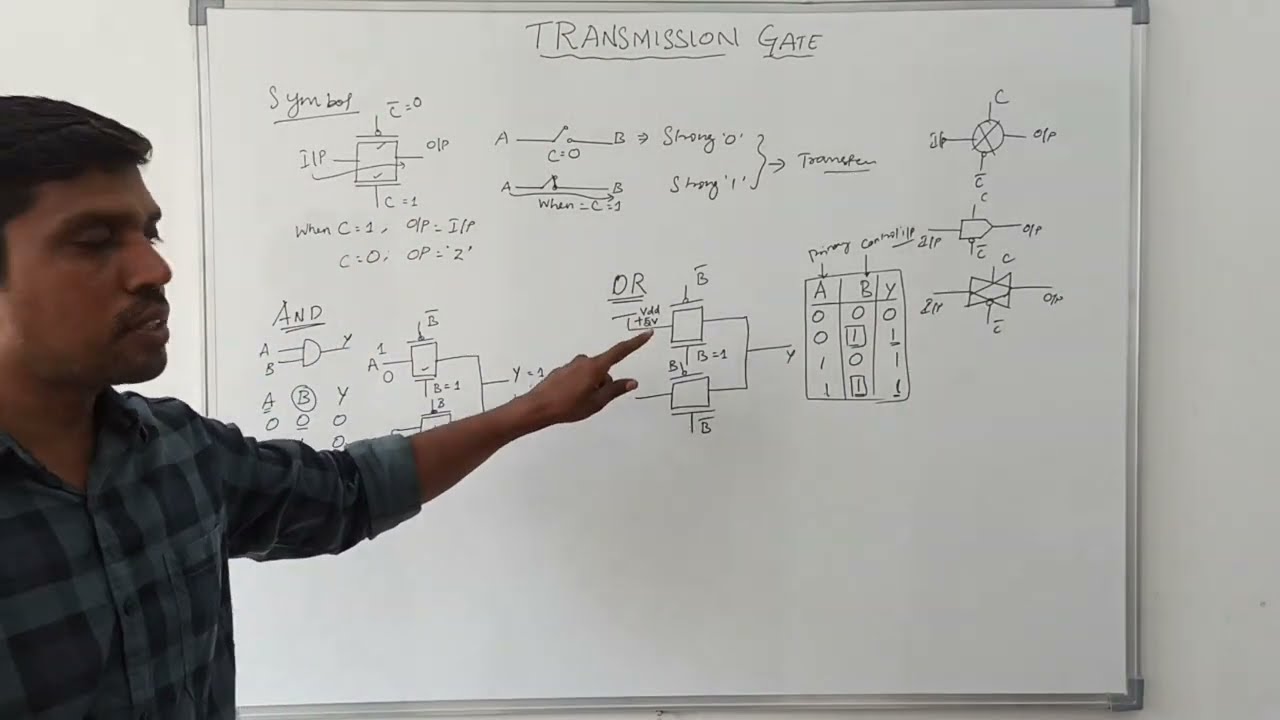 TRANSMISSION GATE
Symbol
C̅=0
I/P
O/P
C=1
When C=1, O/P = I/P
C=0; OP='Z'
A B ⇒ Strong '0'
C=0
A B Strong '1'
When C=1
→ Transfer
C
I/P O/P
C̅
C
I/P O/P
C̅
C
I/P O/P
C̅
AND
A
B
Y
A B Y
0 0 0
0
B̅
1
A
0
B=1
B
Y=1
OR
B̅
Vdd
+5V
B=1
B
B̅
Y
Primary Control I/P
A B Y
0 0 0
0 1 1
1 0 1
1 1 1